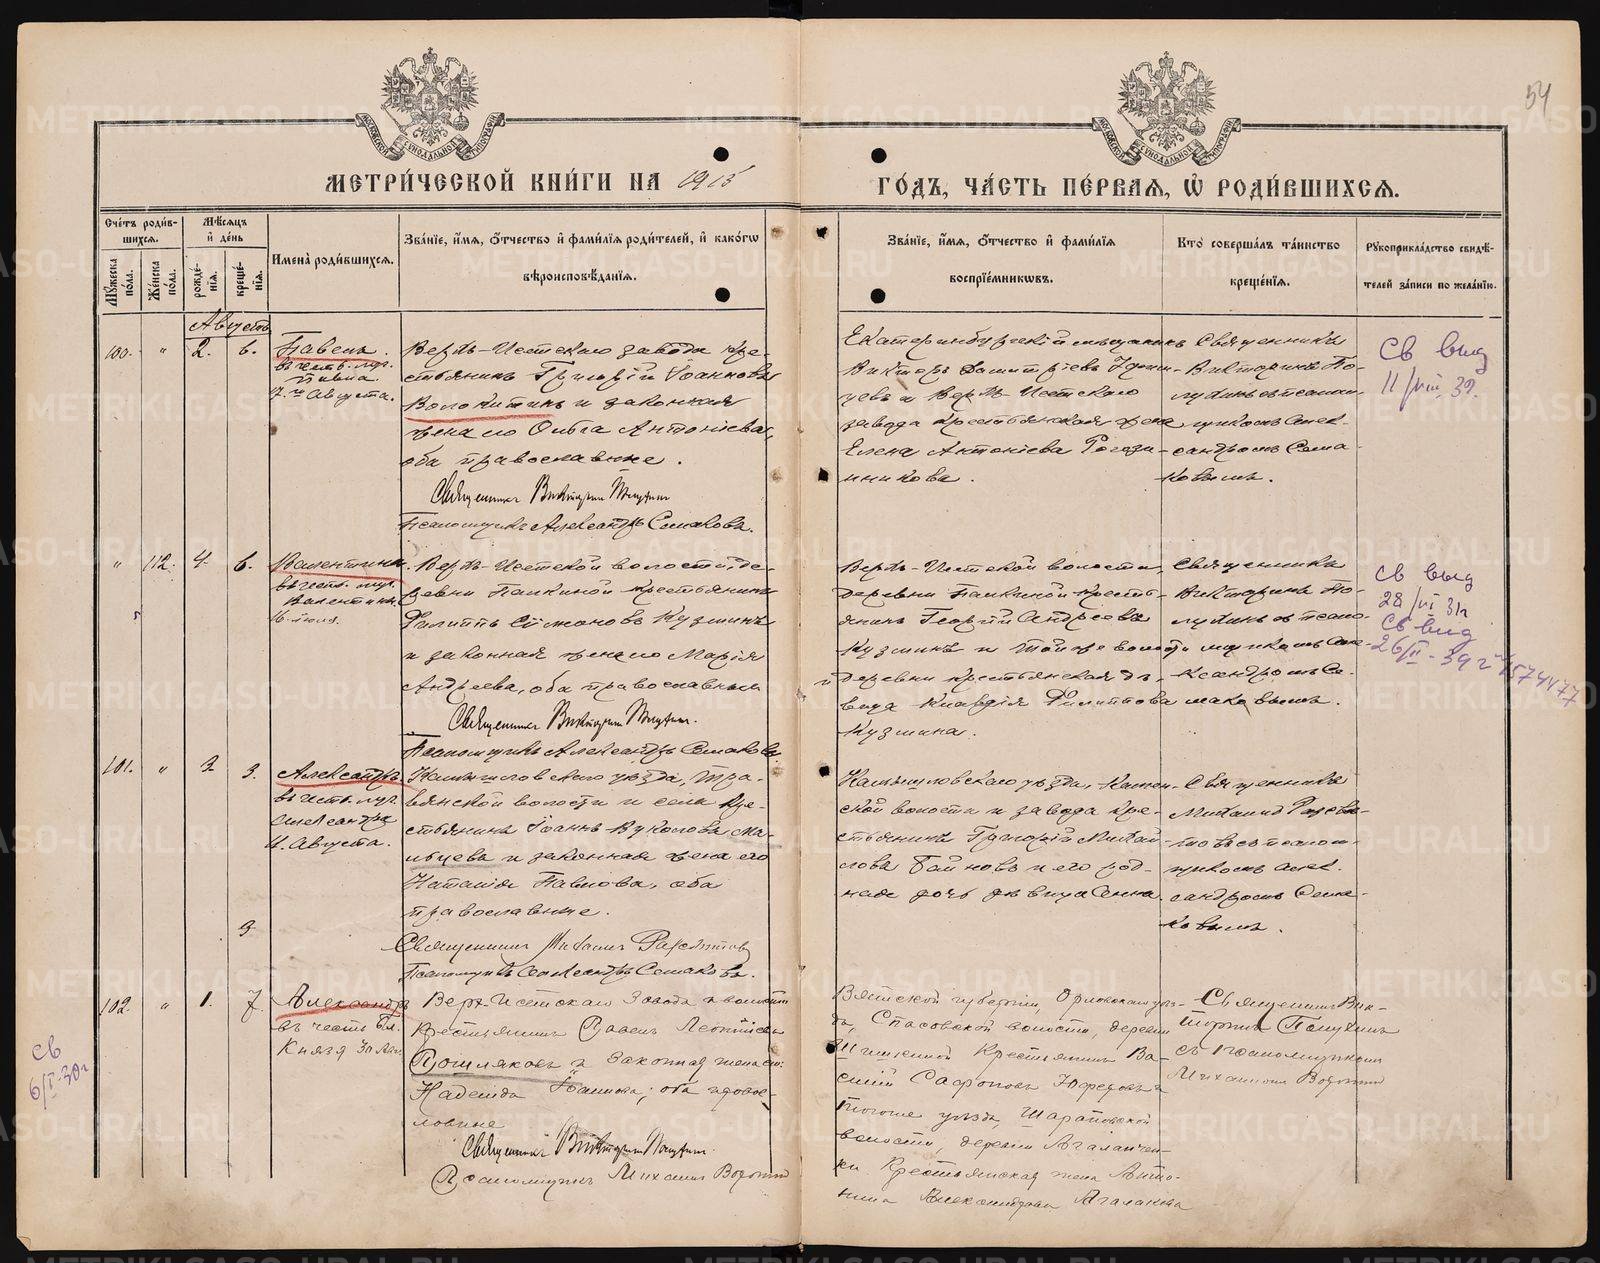 54
МЕТРИ́ЧЕСКОЙ КНИ́ГИ НА 1915
ГО́ДЪ, ЧА́СТЬ ПЕ́РВАѦ, Ѡ҆ РОДИ́ВШИХСѦ.
Сче́тъ роди́вшихсѧ.
Мѣ́сѧцъ и҆ де́нь
Мꙋ́жеска по́ла.
Же́нска по́ла.
рожде́нїѧ.
креще́нїѧ.
И҆мена̀ роди́вшихсѧ.
Зва́нїе, и҆́мѧ, ѻ҆́тчество и҆ фами́лїѧ роди́телей, и҆ како́гѡ
вѣроисповѣ́данїѧ.
Зва́нїе, и҆́мѧ, ѻ҆́тчество и҆ фами́лїѧ
воспрїе́мникѡвъ.
Кто̀ соверша́лъ та́инство
креще́нїѧ.
Рꙋкоприкла́дство свидѣ́телей за́писи по жела́нїю.
Августъ
100. " 2. 6.
Павелъ.
въ честь муч.
Павла
17-го Августа.
Верхъ-Исетскаго завода кре-
стьянинъ Григорій Іоанновъ
Волокитинъ и законная
жена его Ольга Антоніева,
оба православные.
Священникъ Викторинъ
Псаломщикъ Александръ Семаковъ.
Екатеринбургскій мѣщанинъ
Викторъ Димитріевъ
и Верхъ-Исетскаго
завода крестьянская жена
Елена Антоніева
Священникъ
Викторинъ По-
съ псалом-
щикомъ Алек-
сандромъ Сема-
ковымъ.
Св выд
11/VIII 39.
" 112. 4. 6.
Валентина.
въ честь муч.
Валентины
16 Іюля.
Верхъ-Исетской волости, де-
ревни Палкиной крестьянинъ
Филиппъ Симоновъ Кузминъ
и законная жена его Марія
Андреева, оба православные
Священникъ Викторинъ
Псаломщикъ Александръ Семаковъ.
Верхъ-Исетской волости,
деревни Палкиной кресть-
янинъ Георгій Андреевъ
Кузминъ и той же волости
и деревни крестьянская дѣ-
вица Клавдія Филиппова
Кузмина.
Священникъ
Викторинъ По-
съ псало-
мщикомъ Але-
ксандромъ Се-
маковымъ.
Св выд
28/VI 31 г
Св выд
26/II - 39 г
101. " 3. 3.
Александръ
въ честь муч.
Александра
11. Августа.
Камышловскаго уѣзда, Тра-
вянской волости и села кре-
стьянинъ Іоаннъ Вуколовъ Ма-
и законная жена его
Наталія Павлова, оба
православные.
Священникъ Михаилъ
Псаломщикъ Александръ Семаковъ.
Камышловскаго уѣзда, Камен-
ской волости и завода кре-
стьянинъ Григорій Михай-
ловъ и его род-
ная дочь дѣвица Анна.
Священникъ
Михаилъ
съ псалом-
щикомъ Алек-
сандромъ Сема-
ковымъ.
3.
102. " 1. 7.
Александръ
въ честь бл.
Князя 30 Авг.
Верх-Исетскаго Завода и волости
Крестьянинъ Павелъ Леонтіевъ
Пошляковъ и Законная жена его
Надежда Іоаннова; оба право-
славные
Священникъ Викторинъ
Псаломщикъ Михаилъ
Вятской губерніи, Орловскаго уѣз-
да, Спасовской волости, деревни
Крестьянинъ Ва-
силій Сафроновъ
тогоже уѣзда, Шараповской
волости, деревни
Крестьянская жена Анто-
нина Александрова Агалакова
Священникъ Вик-
торинъ
съ псаломщикомъ
Михаиломъ
св
6/I-30 г